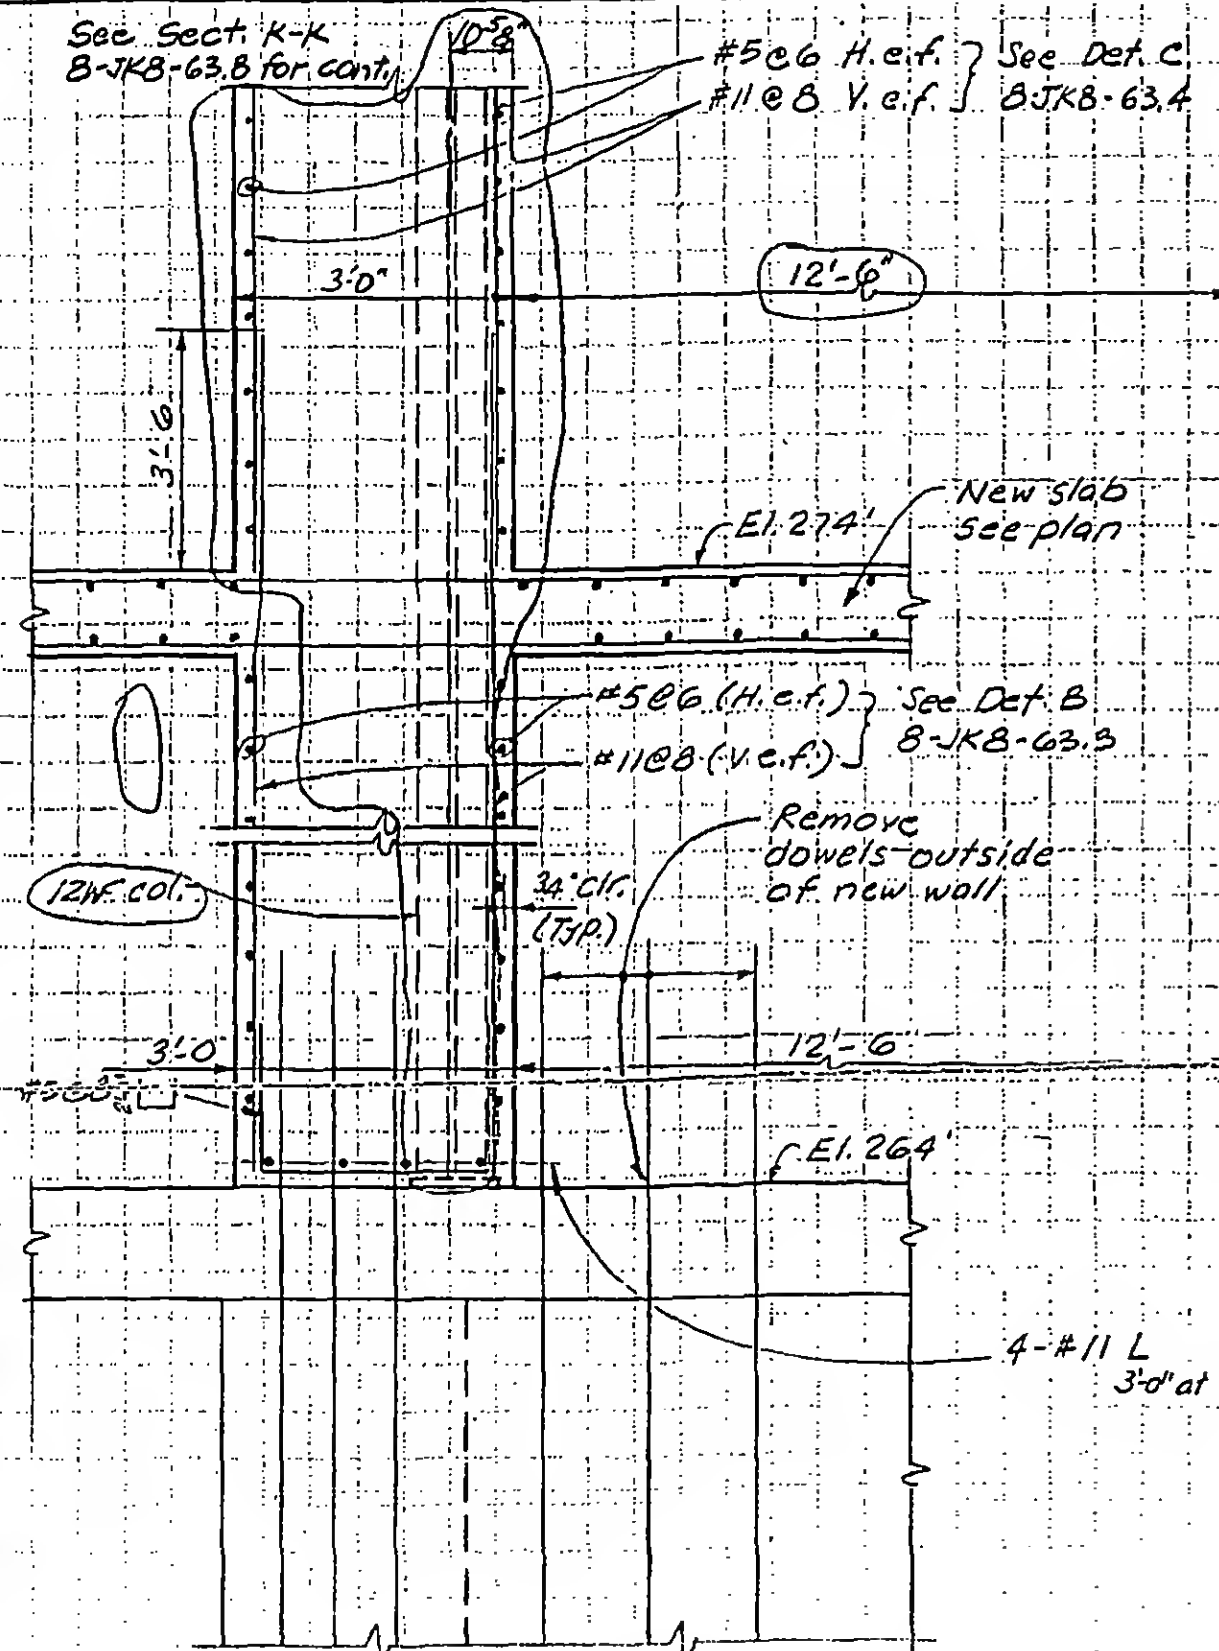 See Sect. K-K
8-JK8-63.8 for cont.
10 5/8"
#5@6 H.e.f. } See Det. C
#11@8 V.e.f. } 8JK8-63.4
3'-0"
12'-6"
3'-6
El. 274'
New slab
see plan
#5@6 (H.e.f.) } See Det. B
#11@8 (V.e.f.) } 8-JK8-63.3
Remove
dowels outside
of new wall
12WF col.
3/4" clr.
(Typ.)
3'-0
12'-6
El. 264'
4-#11 L
3'-0" at